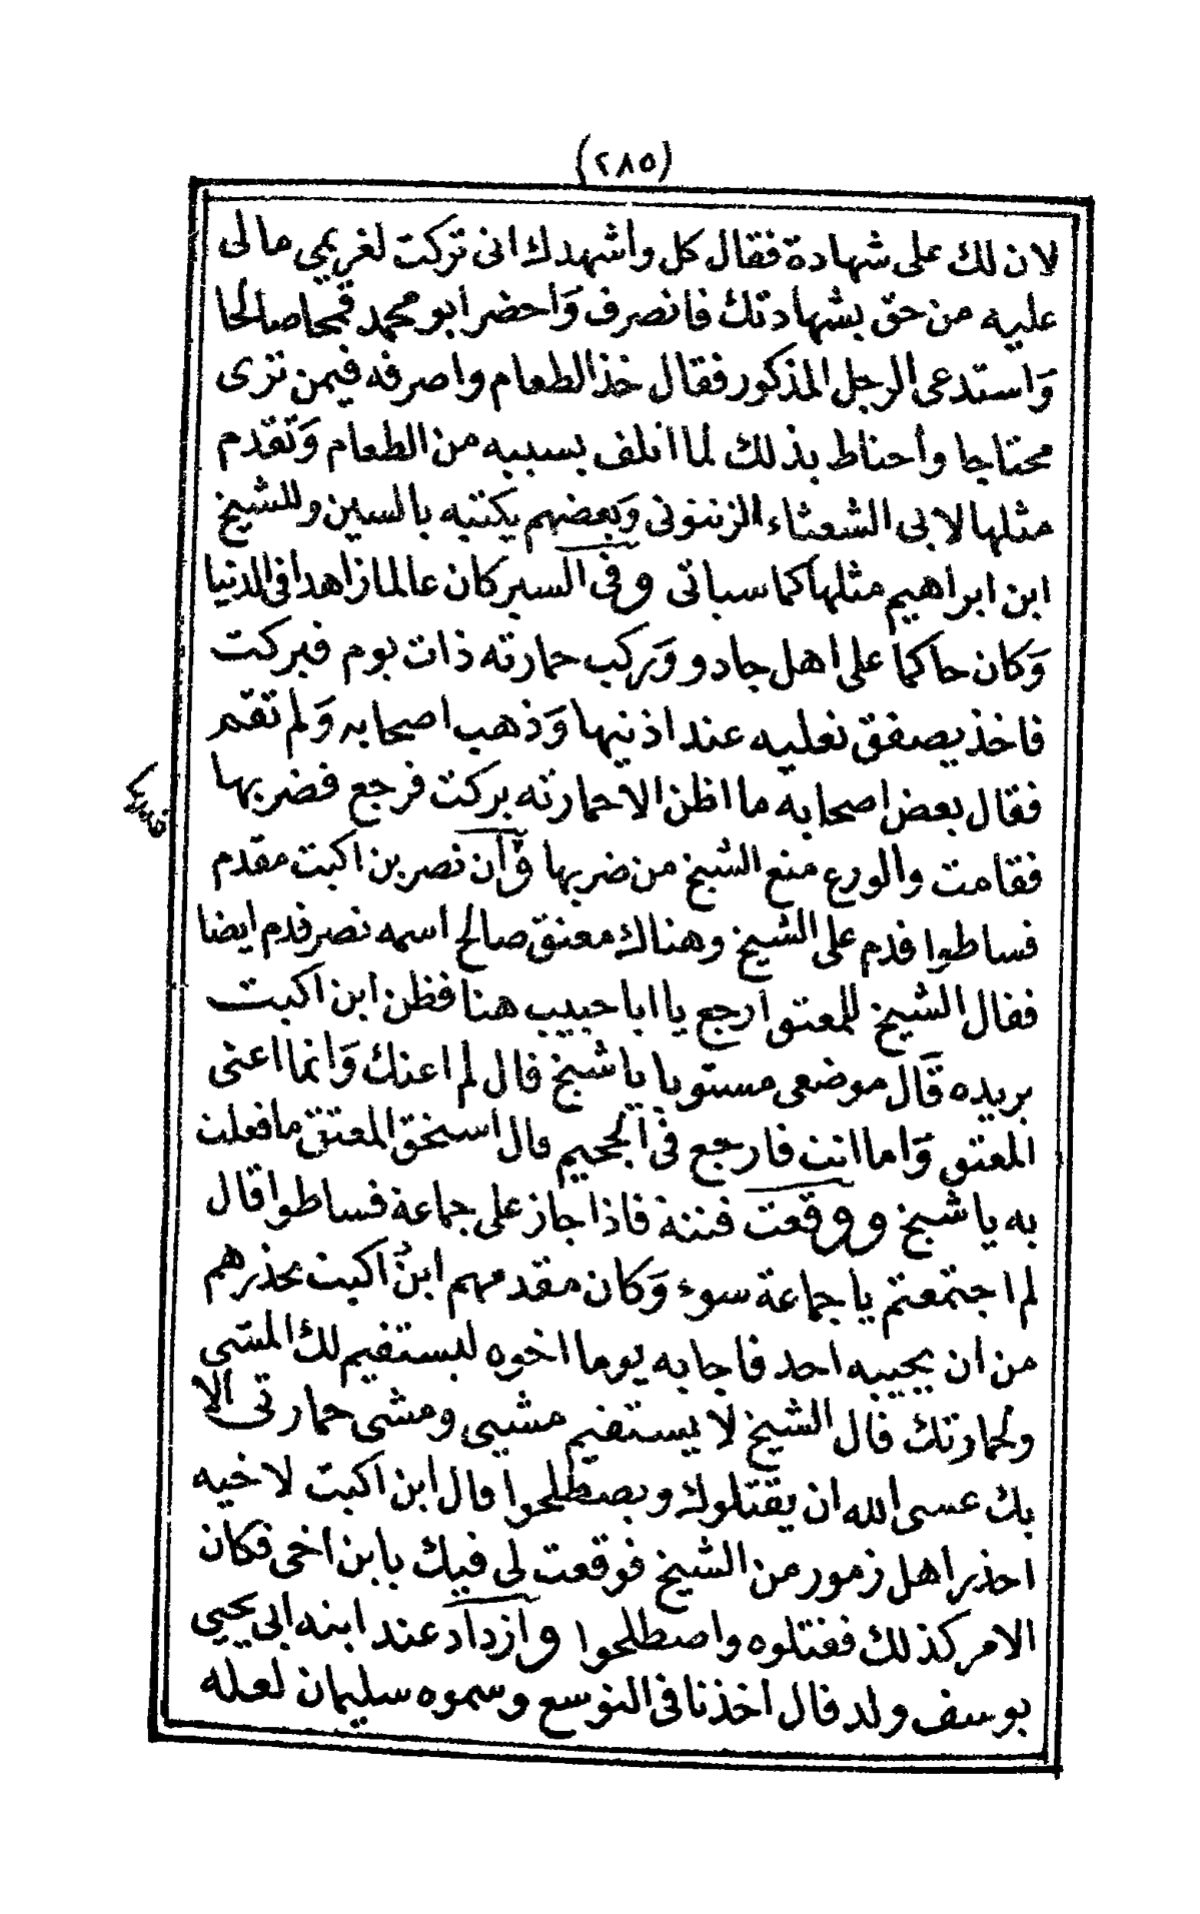 (٢٨٥)
لان لك على شهادة فقال كل واشهدك انى تركت لغريمي مالى
عليه من حق بشهادتك فانصرف وَاحضر ابو محمد قمحا صالحا
وَاستدعى الرجل المذكور فقال خذ الطعام واصرفه فيمن ترى
محتاجا واحتاط بذلك لما اتلف بسببه من الطعام وَتقدم
مثلها لابى الشعثاء الزنزفى وَبعضهم يكتبه بالسين وللشيخ
ابن ابراهيم مثلها كما سياتى وفى السير كان عالما زاهدا فى الدنيا
وَكان حاكما على اهل جادو وَركب حمارته ذات يوم فبركت
فاخذ يصفق نعليه عند اذنيها وَذهب اصحابه وَلم تقم
فقال بعض اصحابه ما اظن الا حمارته بركت فرجع فضربها
فقامت والورع منع الشيخ من ضربها وَآن نصر بن اكبت مقدم
فساطوا قدم على الشيخ وهناك معتق صالح اسمه نصر قدم ايضا
فقال الشيخ للمعتق ارجع يا ابا حبيب هنا فظن ابن اكبت
يريده قَال موضعى مستو يا يا شيخ قال لم اعنك وَانما اعنى
المعتق وَاما انت فارجع فى الجحيم قال استحق المعتق ما فعلت
به يا شيخ ووقعت فتنة فاذا جاز على جماعة فساطوا قال
لم اجتمعتم يا جماعة سوء وَكان مقدمهم ابن اكبت يحذرهم
من ان يجيبه احد فاجابه يوما اخوه ليستقيم لك المشى
ولحمارتك قال الشيخ لا يستقيم مشيى ومشى حمارتى الا
بك عسى الله ان يقتلوك ويصطلحوا قال ابن اكبت لاخيه
احذر اهل زمور من الشيخ فوقعت لى فيك يا بن اخى فكان
الامر كذلك فقتلوه واصطلحوا وازداد عند ابنه ابى يحيى
يوسف ولد قال اخذنا فى التوسع وسموه سليمان لعله